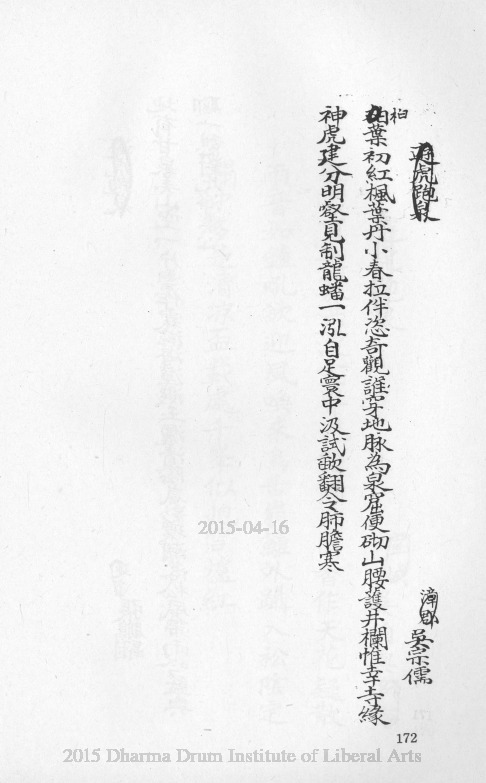 遊虎跑泉
漳郡 吳宗儒
柏葉初紅楓葉丹小春拉伴恣奇觀誰穿地脉為泉窟便砌山腰護井欄惟幸寺緣
神虎建分明壑見制龍蟠一泓自足寰中汲試歃翻令肺膽寒
2015-04-16
172
2015 Dharma Drum Institute of Liberal Arts